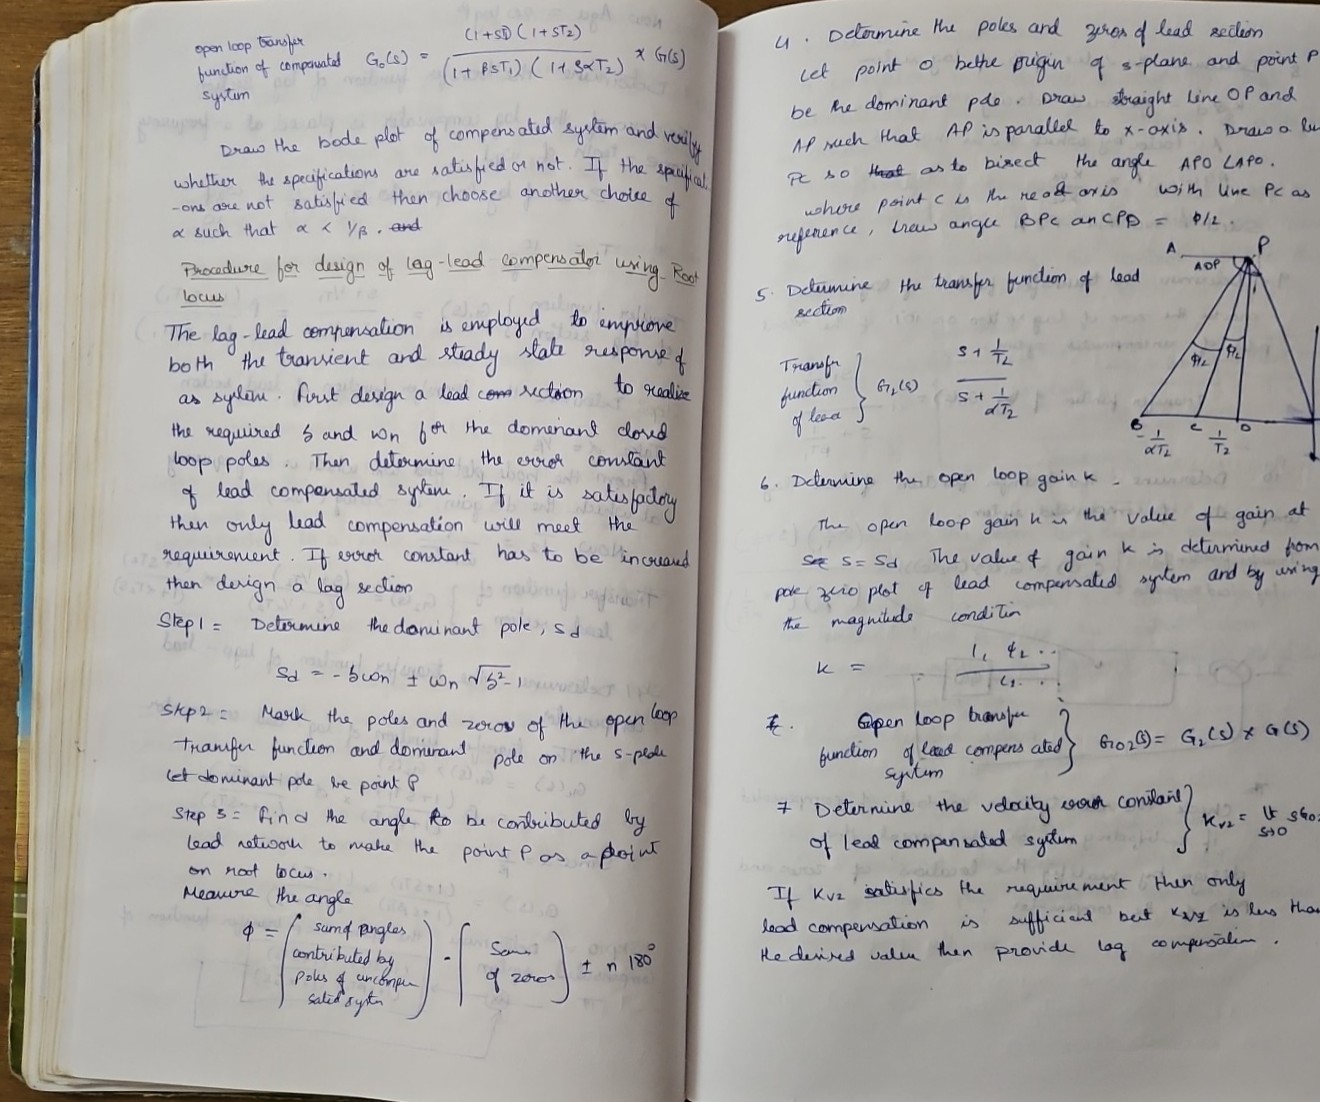 open loop transfer
function of compensated G₀(s) = (1+sT₁)(1+sT₂) / (1+βsT₁)(1+sαT₂) × G(s)
system
Draw the bode plot of compensated system and verify
whether the specifications are satisfied or not. If the specificati
-ons are not satisfied then choose another choice of
α such that α < 1/β. and
Procedure for design of lag-lead compensator using Root
locus
The lag-lead compensation is employed to improve
both the transient and steady state response of
as system. First design a lead com section to realize
the required ζ and ωn for the dominant closed
loop poles. Then determine the error constant
of lead compensated system. If it is satisfactory
then only lead compensation will meet the
requirement. If error constant has to be increased
then design a lag section
Step 1 = Determine the dominant pole, sd
Sd = -ζωn ± ωn √ζ²-1
Step 2 = Mark the poles and zeros of the open loop
transfer function and dominant pole on the s-plane
Let dominant pole be point P
Step 3 = Find the angle to be contributed by
lead network to make the point P as a point
on root locus.
Measure the angle
ϕ = (sum of angles contributed by poles of uncompensated system) - (Sum of zeros) ± n 180°
4. Determine the poles and zeros of lead section
Let point O be the origin of s-plane and point P
be the dominant pole. Draw straight line OP and
AP such that AP is parallel to x-axis. Draw a
PC so that as to bisect the angle APO ∠APO.
where point C is the real axis with line PC as
reference, draw angle BPC an CPD = ϕ/2.
A P
AOP
ϕ/2 ϕ/2
B C D
-1/αT₂ 1/T₂
5. Determine the transfer function of lead
section
Transfr
function
of lead } G₂(s) = s + 1/T₂ / s + 1/αT₂
6. Determine the open loop gain K.
The open loop gain K is the value of gain at
s= s = sd The value of gain k is determined from
pole zero plot of lead compensated system and by using
the magnitude conditin
K =
7. Open loop transfer
function of lead compensated
system } G₀₂(s) = G₂(s) × G(s)
7 Determine the velocity error constant
of lead compensated system } Kv2 = lt s→0 sG02
If Kv2 satisfies the requirement then only
lead compensation is sufficient but Kv2 is less than
the desired value then provide lag compensation.